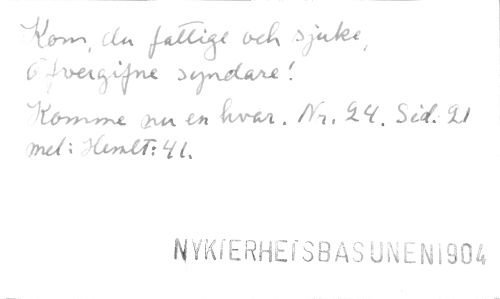 Kom, du fattige och sjuke,
Öfvergifne syndare!
Komme nu en hvar. Nr. 24. Sid. 21
mel: Hemlt: 41.
NYKTERHETSBASUNEN 1904